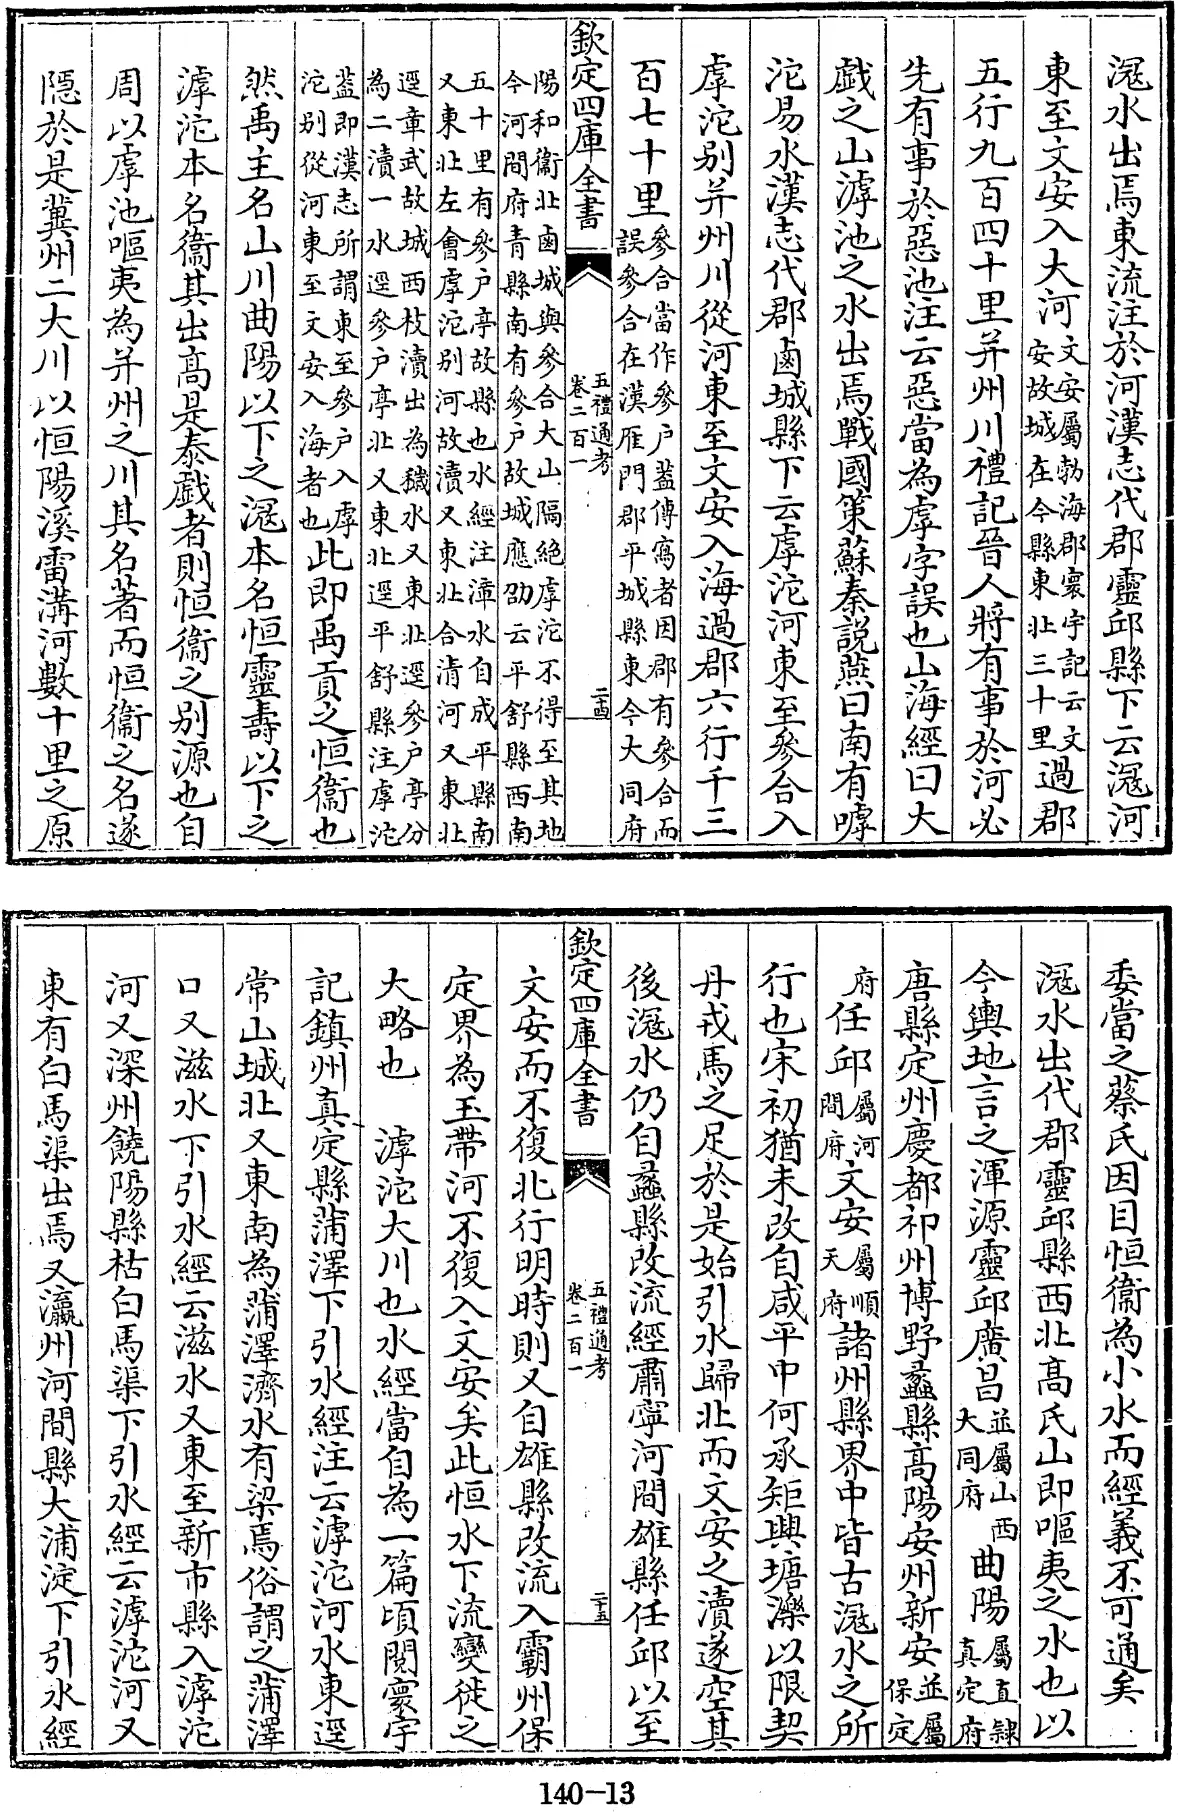 滱水出焉東流注於河漢志代郡靈邱縣下云滱河
東至文安入大河文安屬勃海郡寰宇記云文安故城在今縣東北三十里過郡
五行九百四十里并州川禮記晉人將有事於河必
先有事於惡池注云惡當為虖字誤也山海經曰大
戲之山滹池之水出焉戰國策蘇秦説燕曰南有嘑
沱易水漢志代郡鹵城縣下云虖沱河東至參合入
虖沱别并州川從河東至文安入海過郡六行千三
百七十里參合當作參户葢傳寫者因郡有參合而誤參合在漢雁門郡平城縣東今大同府
欽定四庫全書
五禮通考
卷二百一
二十四
陽和衞北鹵城與參合大山隔絶虖沱不得至其地今河間府青縣南有參户故城應劭云平舒縣西南
五十里有參户亭故縣也水經注漳水自成平縣南又東北左會虖沱别河故瀆又東北合清河又東北
逕章武故城西枝瀆出為濊水又東北逕參户亭分為二瀆一水逕參户亭北又東北逕平舒縣注虖沱
葢即漢志所謂東至參户入虖沱别從河東至文安入海者也此即禹貢之恒衞也
然禹主名山川曲陽以下之滱本名恒靈壽以下之
滹沱本名衞其出髙是泰戲者則恒衞之别源也自
周以虖池嘔夷為并州之川其名著而恒衞之名遂
隱於是冀州二大川以恒陽溪雷溝河數十里之原
委當之蔡氏因目恒衞為小水而經義不可通矣
滱水出代郡靈邱縣西北髙氏山即嘔夷之水也以
今輿地言之渾源靈邱廣昌並屬山西大同府曲陽屬直隸真定府
唐縣定州慶都祁州博野蠡縣髙陽安州新安並屬保定
府任邱屬河間府文安屬順天府諸州縣界中皆古滱水之所
行也宋初猶未改自咸平中何承矩興塘濼以限契
丹戎馬之足於是始引水歸北而文安之瀆遂空其
後滱水仍自蠡縣改流經肅寧河間雄縣任邱以至
欽定四庫全書
五禮通考
卷二百一
二十五
文安而不復北行明時則又自雄縣改流入霸州保
定界為玉帶河不復入文安矣此恒水下流變徙之
大略也　滹沱大川也水經當自為一篇頃閲寰宇
記鎮州真定縣蒲澤下引水經注云滹沱河水東逕
常山城北又東南為蒲澤濟水有梁焉俗謂之蒲澤
口又滋水下引水經云滋水又東至新市縣入滹沱
河又深州饒陽縣枯白馬渠下引水經云滹沱河又
東有白馬渠出焉又瀛州河間縣大浦淀下引水經
140-13